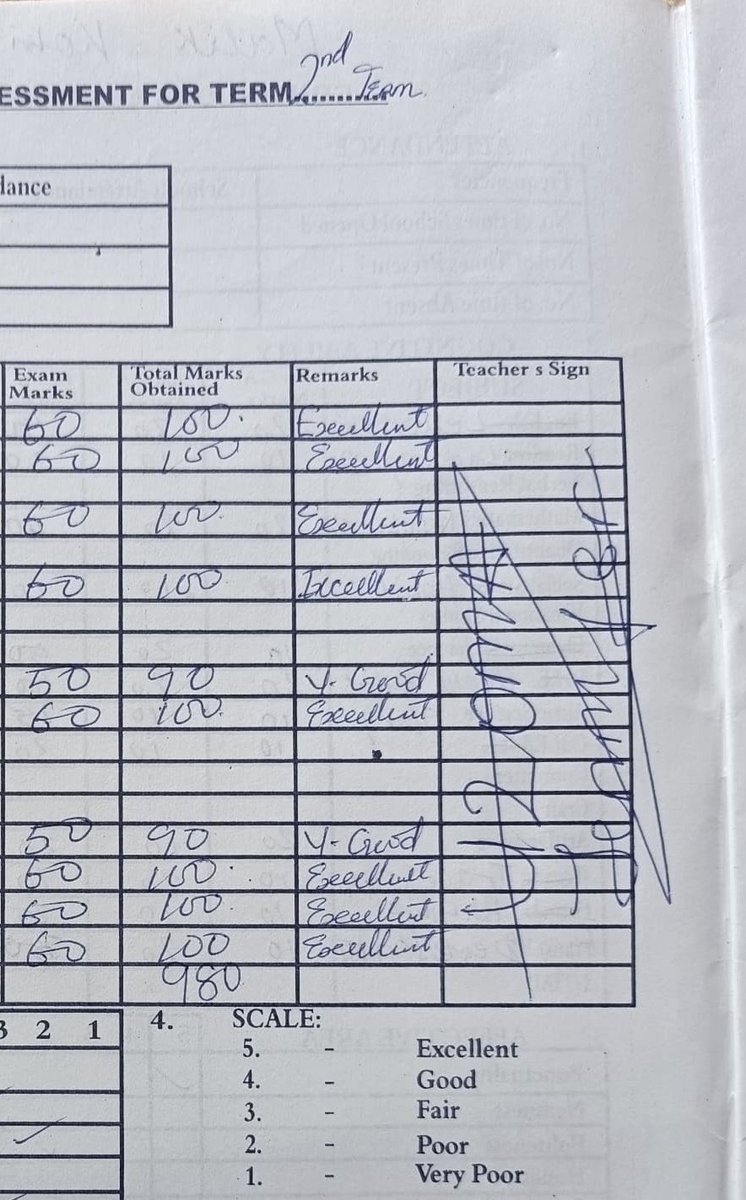 ESSMENT FOR TERM........ 2nd Term
dance
Exam Marks Total Marks Obtained Remarks Teacher s Sign
60 100. Excellent
60 100 Excellent
60 100. Excellent
60 100 Excellent
50 90 V. Good
60 100. Excellent
50 90 V. Good
60 100. Excellent
60 100. Excellent
60 100 Excellent
980
3 2 1 4. SCALE:
5. - Excellent
4. - Good
3. - Fair
2. - Poor
1. - Very Poor